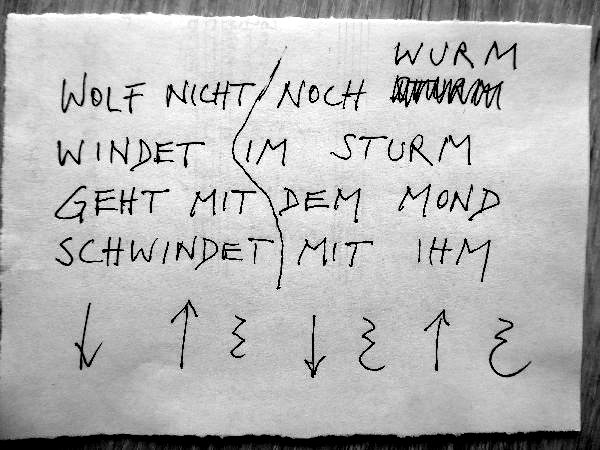 WOLF NICHT NOCH WURM
WINDET IM STURM
GEHT MIT DEM MOND
SCHWINDET MIT IHM